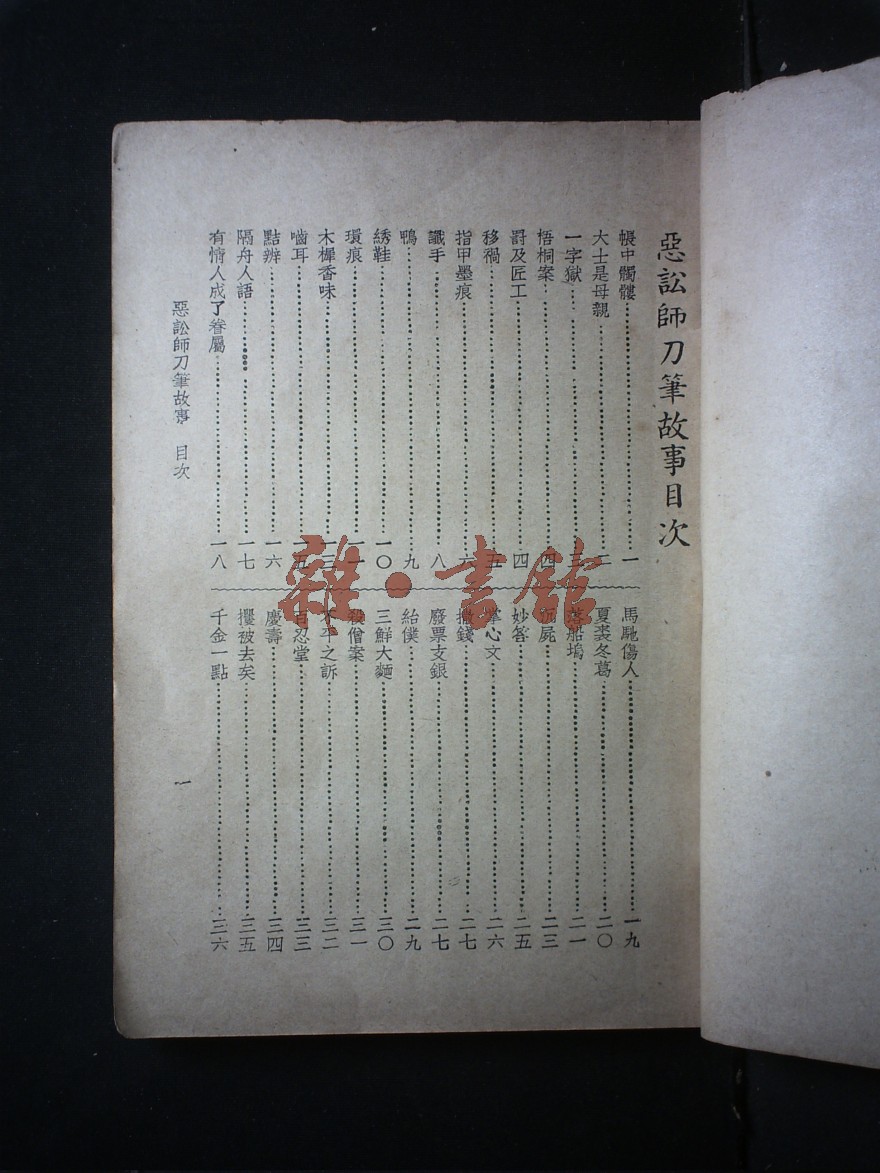 惡訟師刀筆故事目次
帳中髑髏一
大士是母親二
一字獄三
梧桐案四
罸及匠工四
移禍五
指甲墨痕六
讖手八
鴨九
綉鞋一〇
環痕一一
木樨香味一三
嚙耳一五
點辨一六
隔舟人語一七
有情人成了眷屬一八
馬馳傷人一九
夏裘冬葛二〇
落船塢二一
屍二三
妙答二五
掌心文二六
撒錢二七
廢票支銀二七
紿僕二九
三鮮大麵三〇
殺僧案三一
不平之訴三二
百忍堂三三
慶壽三四
攫被去矣三五
千金一點三六
惡訟師刀筆故事 目次
一
雜·書館